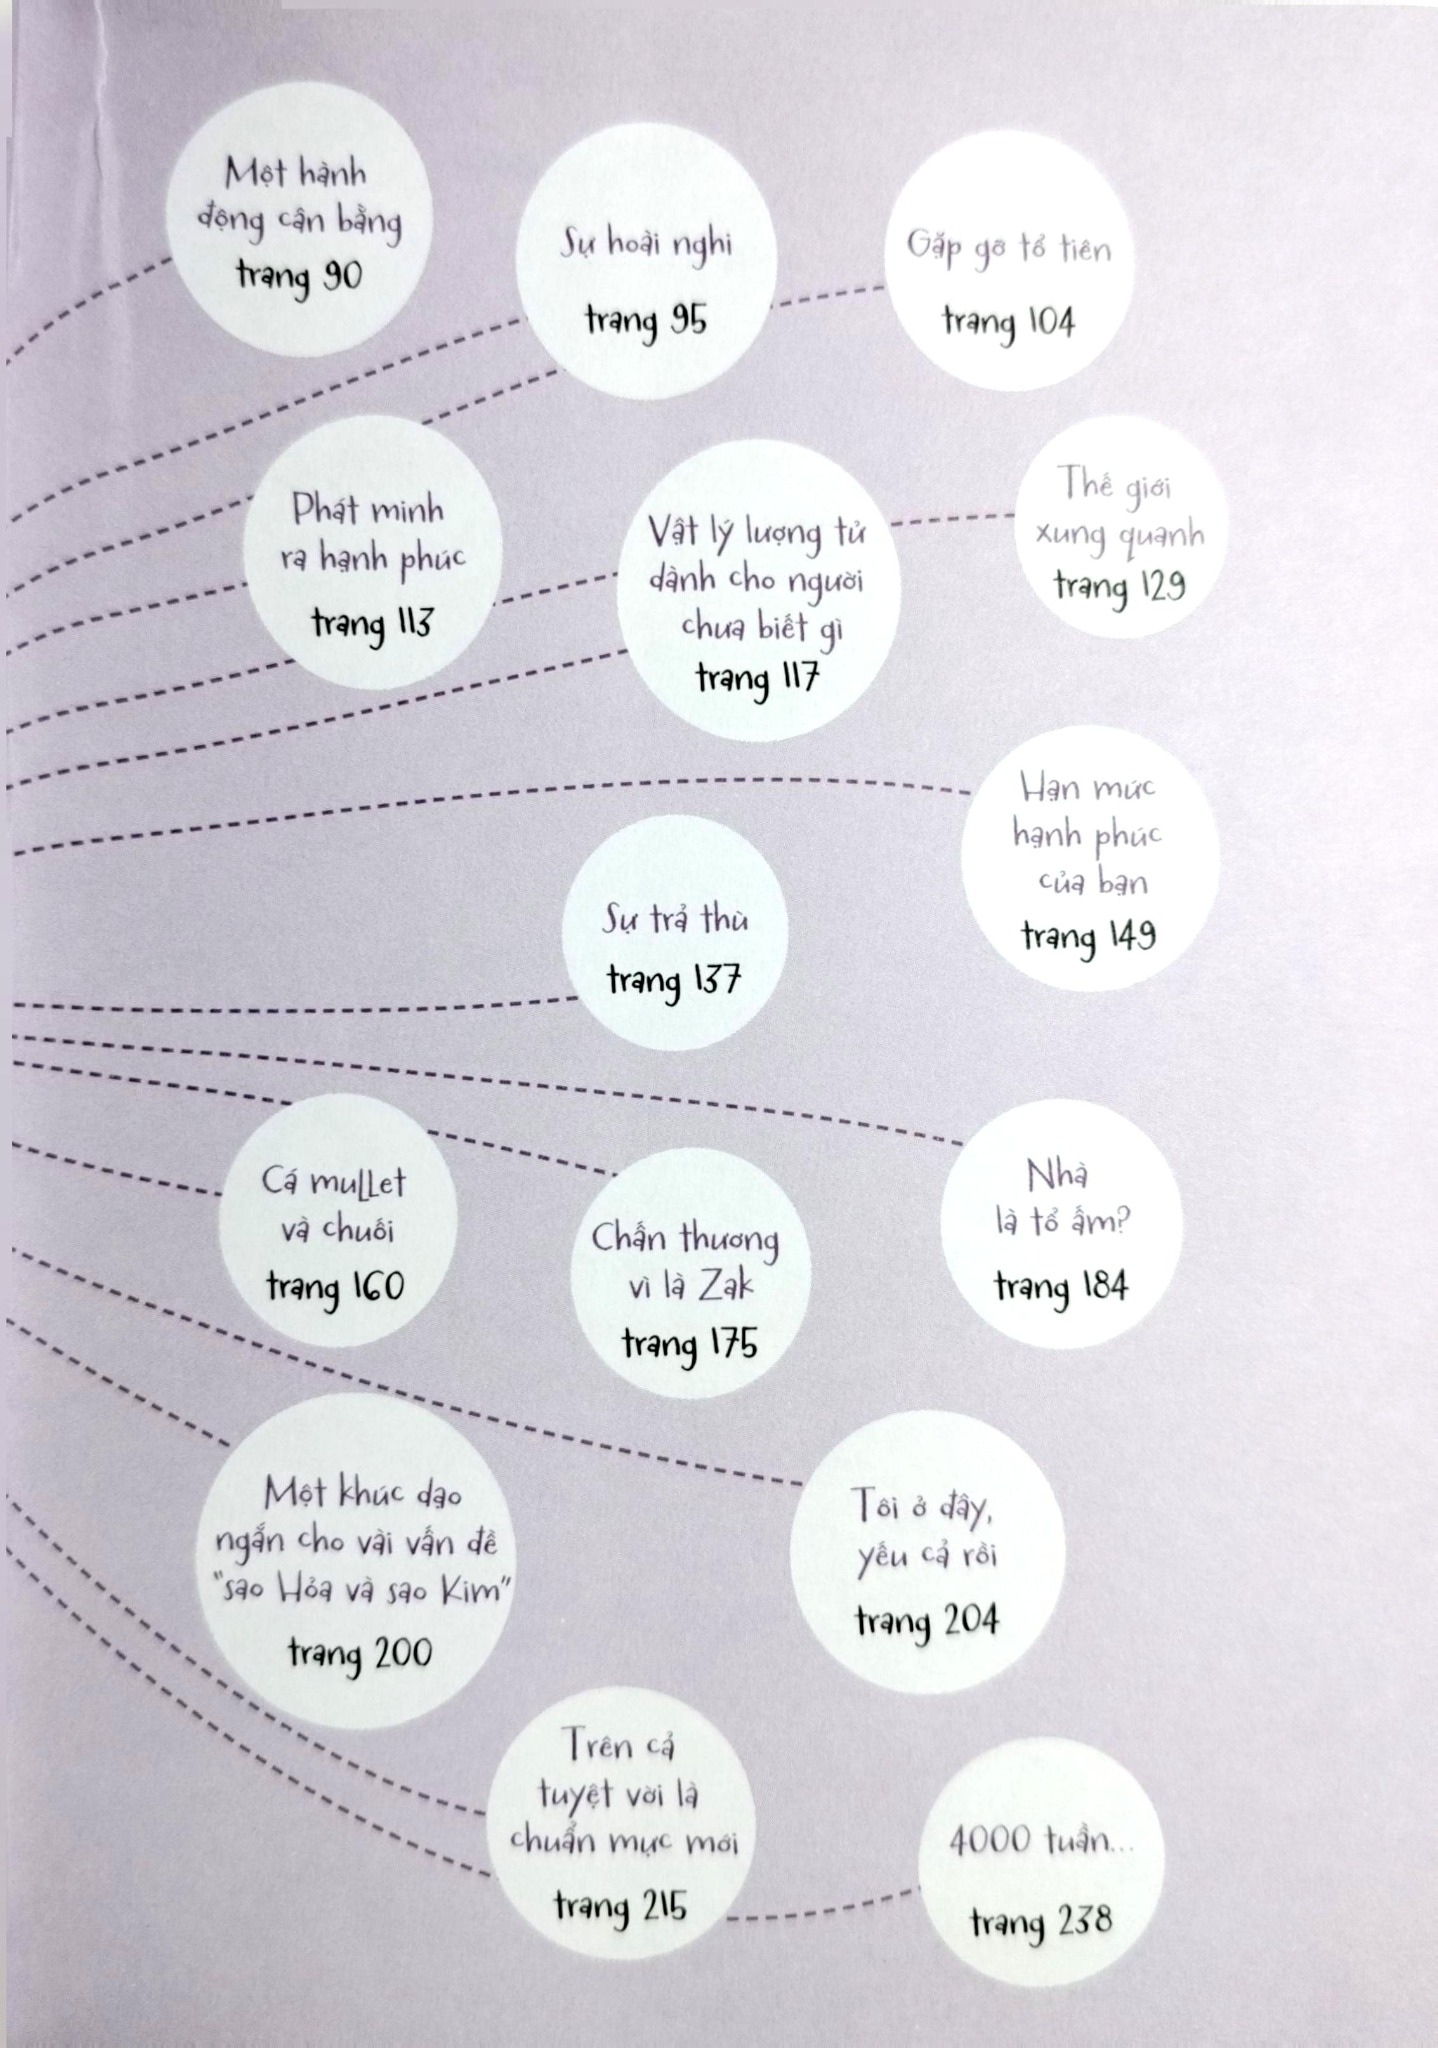 Một hành
động cân bằng
trang 90
Sự hoài nghi
trang 95
Gặp gỡ tổ tiên
trang 104
Phát minh
ra hạnh phúc
trang 113
Vật lý lượng tử
dành cho người
chưa biết gì
trang 117
Thế giới
xung quanh
trang 129
Hạn mức
hạnh phúc
của bạn
trang 149
Sự trả thù
trang 137
Cá mullet
và chuối
trang 160
Chấn thương
vì là Zak
trang 175
Nhà
là tổ ấm?
trang 184
Một khúc dạo
ngắn cho vài vấn đề
"sao Hỏa và sao Kim"
trang 200
Tôi ở đây,
yếu cả rồi
trang 204
Trên cả
tuyệt vời là
chuẩn mực mới
trang 215
4000 tuần...
trang 238